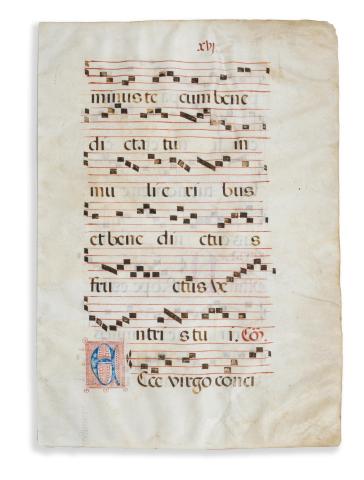 xvj
minus te cum bene
di cta tu in
mu li e ri bus
et bene di ctu s
fru ctus ve
ntri s tu i. Cō.
ECce virgo conci